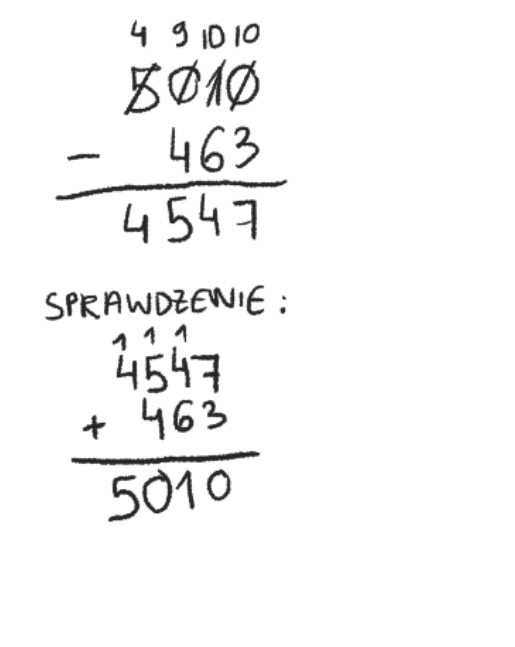 4 9 10 10
5010
- 463
4547
SPRAWDZENIE:
1 1 1
4547
+ 463
5010